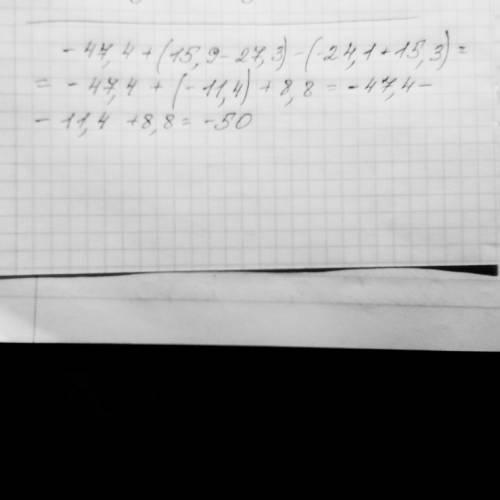 - 47,4 + (15,9 - 27,3) - (-24,1 + 15,3) =
= - 47,4 + (-11,4) + 8,8 = -47,4 -
- 11,4 + 8,8 = -50